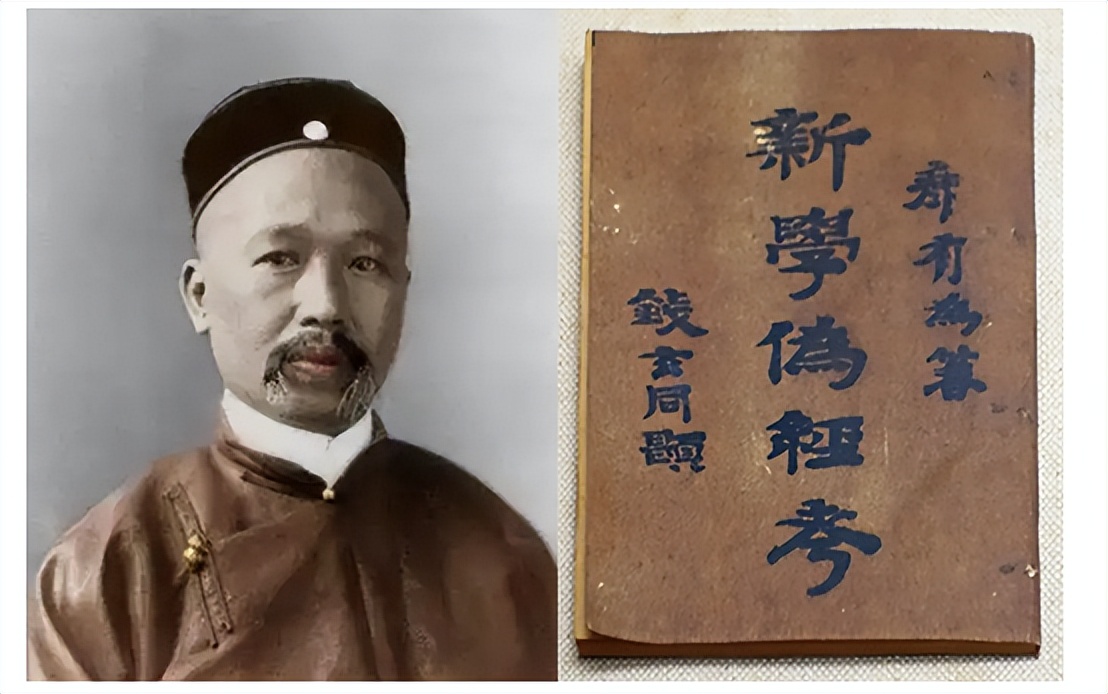 康有為箸
新學偽經考
錢玄同題